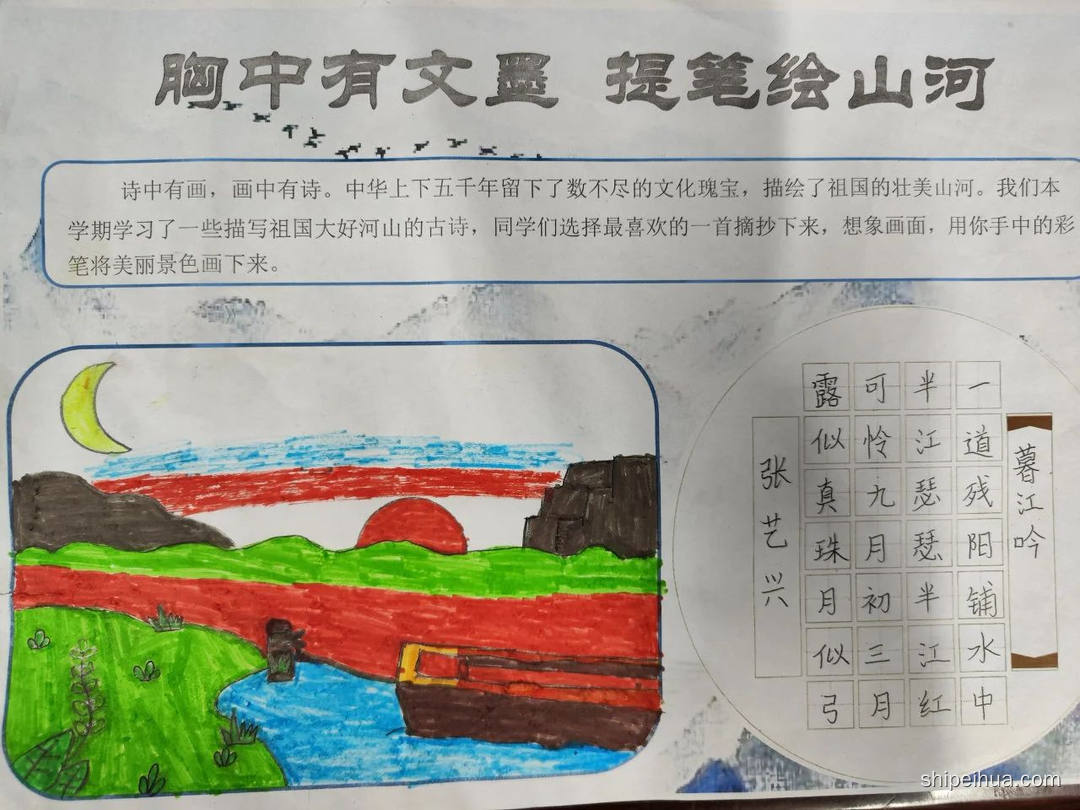 胸中有文墨 提笔绘山河
诗中有画，画中有诗。中华上下五千年留下了数不尽的文化瑰宝，描绘了祖国的壮美山河。我们本
学期学习了一些描写祖国大好河山的古诗，同学们选择最喜欢的一首摘抄下来，想象画面，用你手中的彩
笔将美丽景色画下来。
暮江吟
一道残阳铺水中
半江瑟瑟半江红
可怜九月初三月
露似真珠月似弓
张艺兴
shipeihua.com